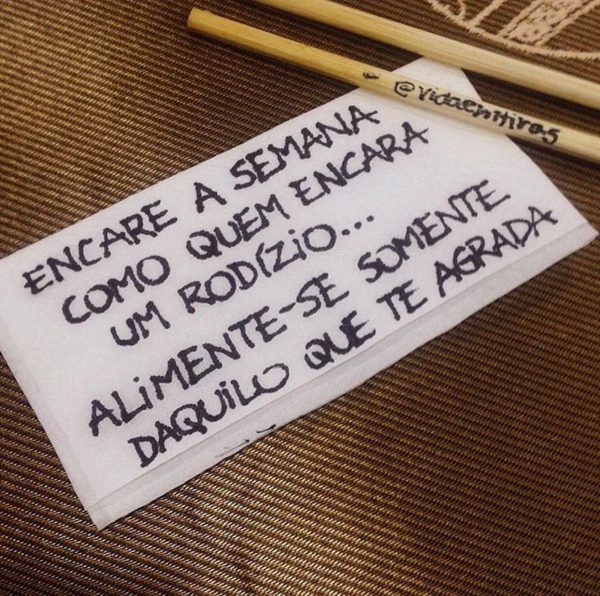 @vidaemtiras
ENCARE A SEMANA
COMO QUEM ENCARA
UM RODÍZIO...
ALIMENTE-SE SOMENTE
DAQUILO QUE TE AGRADA